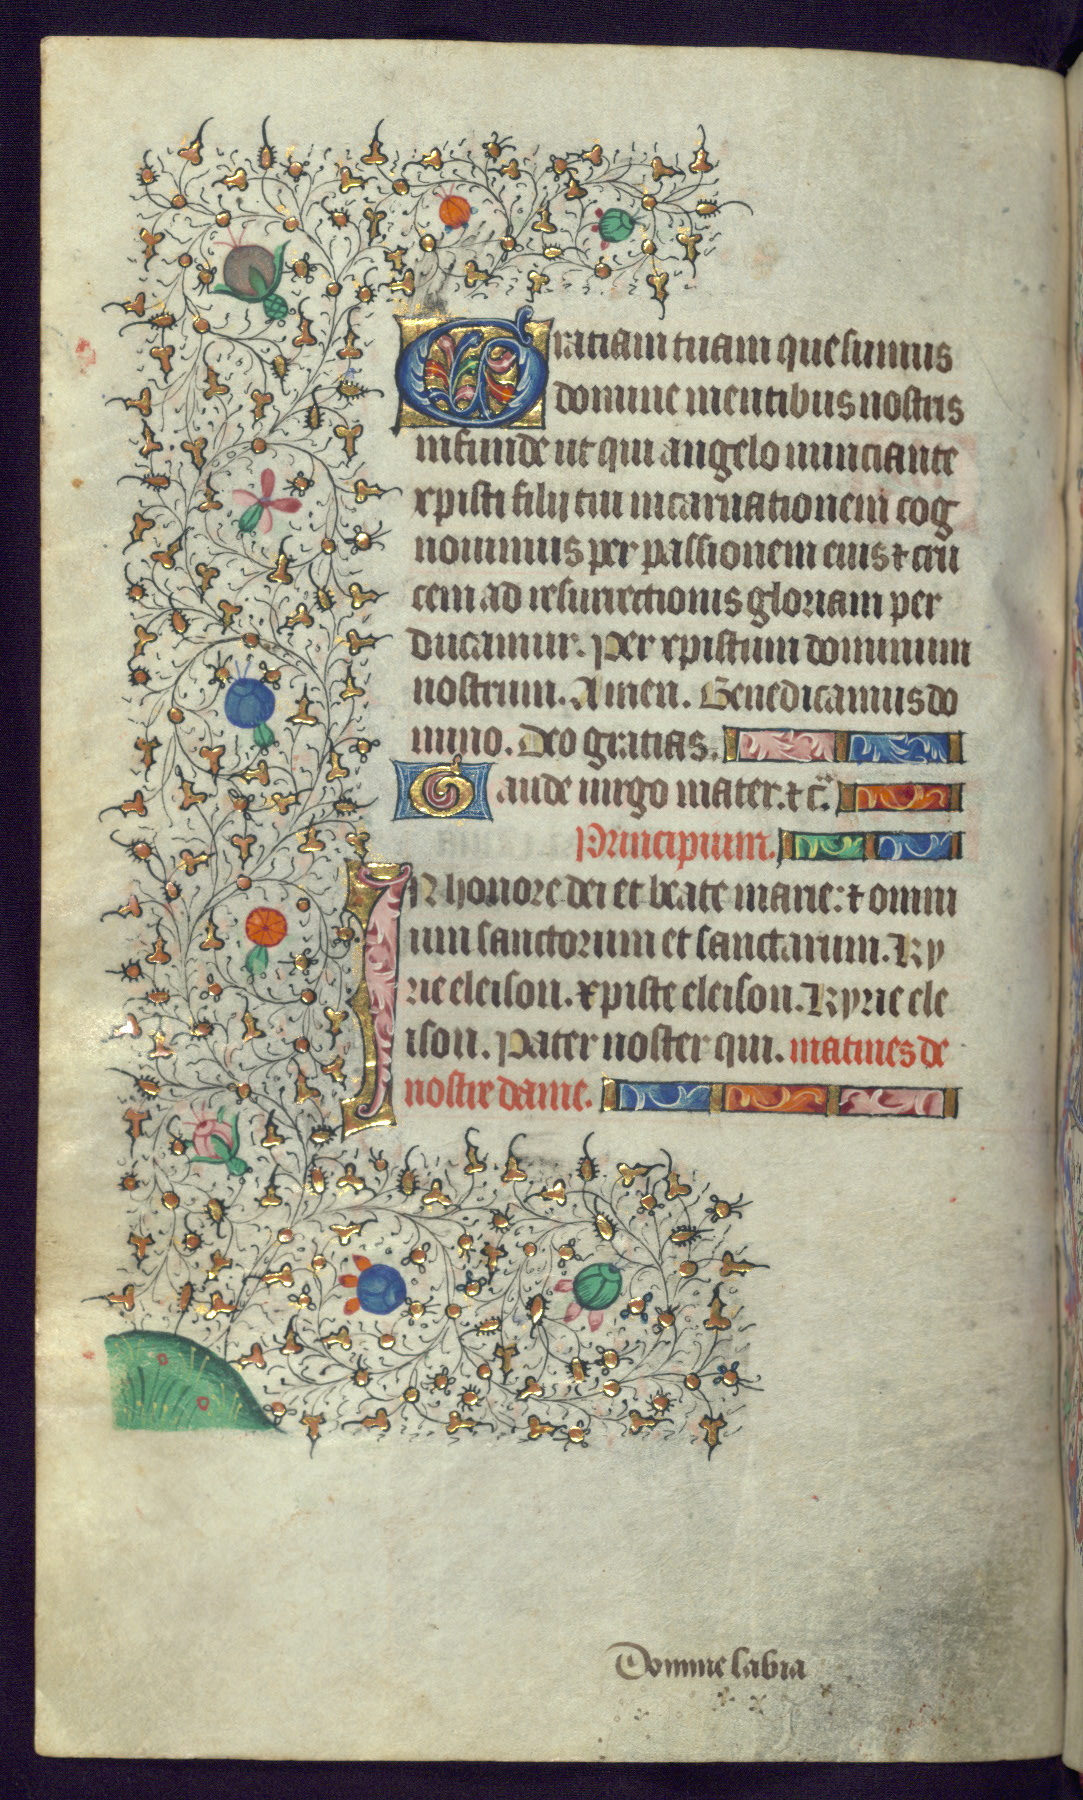 Gratiam tuam quesumus
domine mentibus nostris
infunde ut qui angelo nunciante
xpisti filij tui incarnationem cog
nouimus per passionem eius ⁊ cru
cem ad resurrectionis gloriam per
ducamur. Per xpistum dominum
nostrum. Amen. Benedicamus do
mino. Deo gratias.
Gaude uirgo mater. ⁊ c̃.
Principium.
IN honore dei et beate marie: ⁊ omni
um sanctorum et sanctarum. Ky
rie eleison. xpiste eleison. Kyrie ele
ison. Pater noster qui. matines de
nostre dame.
Domine labia